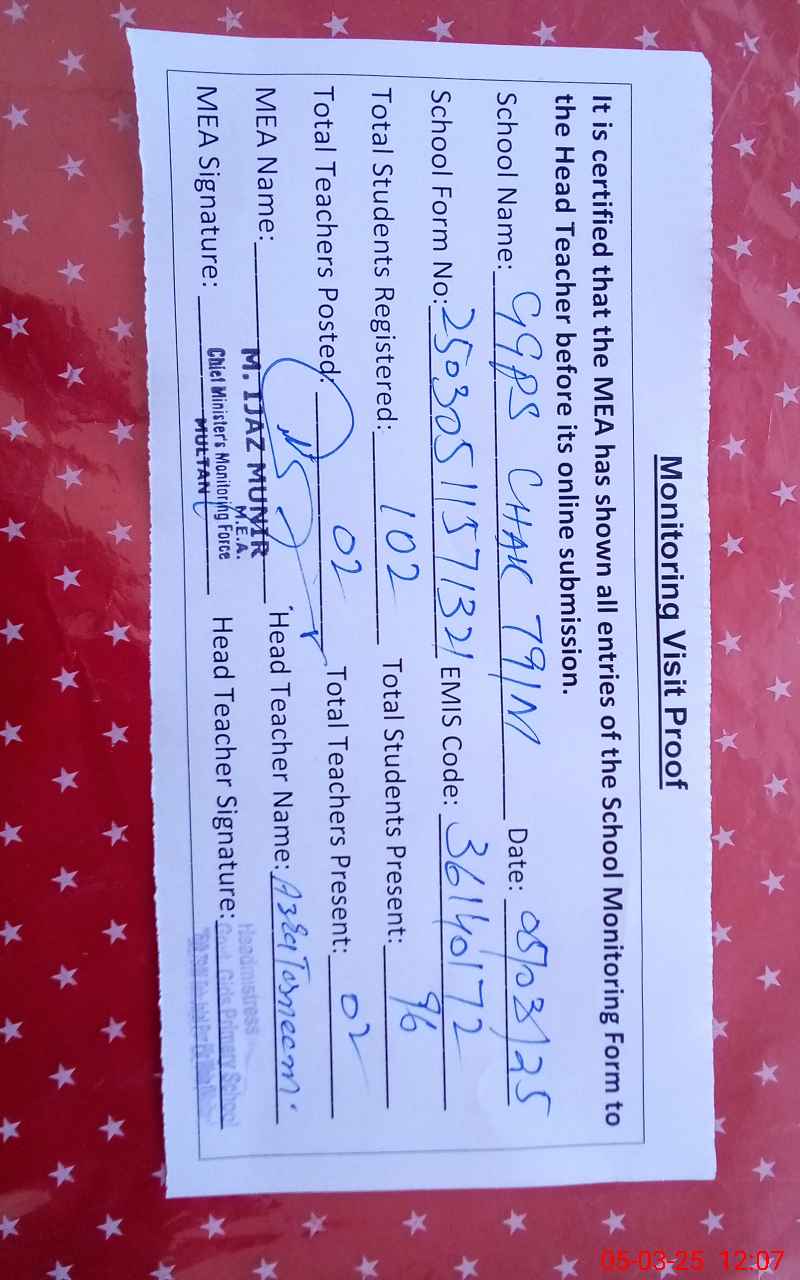 Monitoring Visit Proof
It is certified that the MEA has shown all entries of the School Monitoring Form to
the Head Teacher before its online submission.
School Name: GGPS CHAK 79/M Date: 05/03/25
School Form No: 25030511571321 EMIS Code: 36140172
Total Students Registered: 102 Total Students Present: 96
Total Teachers Posted: 02 Total Teachers Present: 02
MEA Name: M. IJAZ MUNIR Head Teacher Name: Azra Tasneem.
M.E.A.
MEA Signature: Chief Minister's Monitoring Force Head Teacher Signature: Headmistress
MULTAN Govt. Girls Primary School
05-03-25 12:07